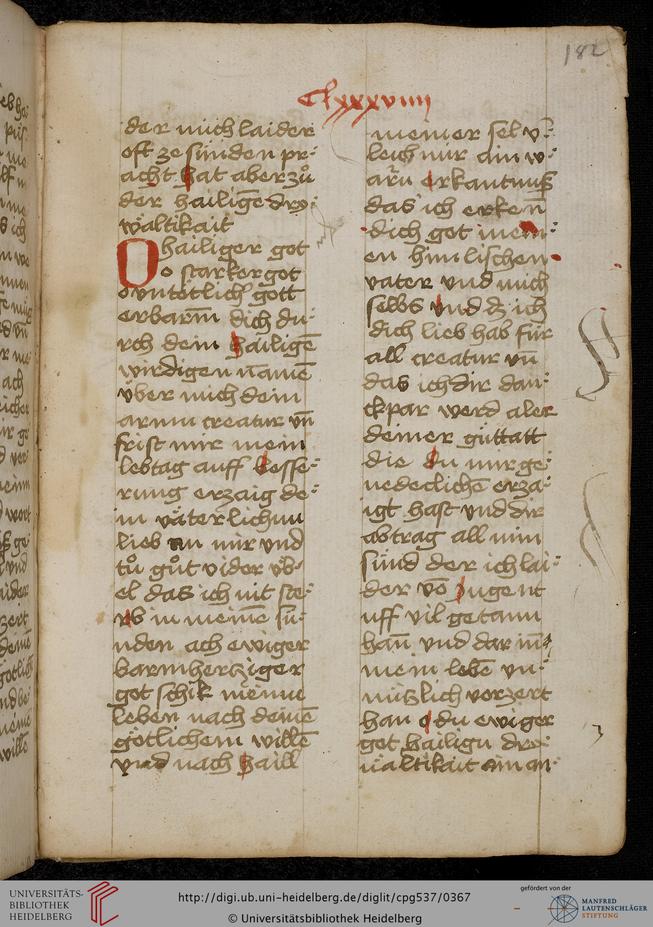 182
Clxxxviiij
der mich laider
oft ze sünden pr⸗
acht hat aber zů
der hailigē dry⸗
waltikait
O hailiger got
o starker got
o vntötlichꝰ gott
erbarm dich du⸗
rch dein hailigē
wirdigen namē
über mich dein
armu creatur vn̄
frist mir mein
lebtag auff besse⸗
rung erzaig de⸗
in väterlichiu
lieb an mir vnd
tů gůt vider vb⸗
el das ich nit ste⸗
rb in meinē sü⸗
nden ach ewiger
barmhertziger
got schik meniu
leben nach deinē
götlichem willē
vnd nach haill
meiner sel v̄⸗
leich mir ain w⸗
arū erkantnuß
das ich erken̄
dich got mein⸗
en himlischen
vater vnd mich
selbs vnd dz ich
dich lieb hab für
all creatur vn̄
das ich dir dan⸗
ckpar werd aler
deiner güttatt
die du mir ge⸗
nedeclichē erza⸗
igt hast vnd dir
abtrag all min
sünd der ich lai⸗
der vō jugent
uff vil getann
han̄ vnd dar in̄
mein lebē vn⸗
nützlich verzert
han o du ewiger
got hailigu dry⸗
ualtikait ain
UNIVERSITÄTS-
BIBLIOTHEK
HEIDELBERG
http://digi.ub.uni-heidelberg.de/diglit/cpg537/0367
© Universitätsbibliothek Heidelberg
gefördert von der
MANFRED
LAUTENSCHLÄGER
STIFTUNG